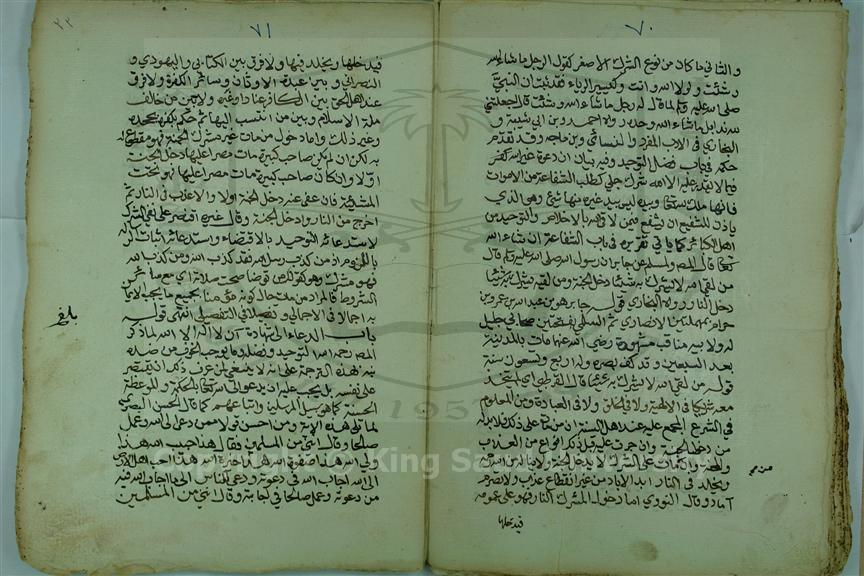 ٧٠
والثاني ما كان من نوع الشرك الأصغر كقول الرجل ما شاء الله
وشئت ولولا الله وانت وكيسير الرياء فقد ثبت ان النبي
صلى الله عليه وسلم لما قال له رجل ما شاء الله وشئت قال اجعلتني
لله ندا بل ما شاء الله وحده رواه احمد وبن ابي شيبة و
البخاري في الادب المفرد والنسائي وبن ماجه وقد تقدم
حكمه في باب فضل التوحيد وفيه بيان ان دعوة غير الله
فيما لا يقدر عليه الا الله شرك جلي كطلب الشفاعة من الاموات
فانها ملك لله تعالى وبيده ليس بيد غيره منها شيء وهو الذي
ياذن للشفيع ان يشفع فيمن لاقاه بالاخلاص والتوحيد من
اهل الكبائر كما ياتي تقريره في باب الشفاعة ان شاء الله
تعالى قال المصـ ولمسلم عن جابر ان رسول الله صلى الله عليه وسلم قال
من لقي الله لا يشرك به شيئا دخل الجنة ومن لقيه يشرك به شيئا
دخل النار قوله جابر هو بن عبد الله بن عمرو بن
حرام بمهملتين الانصاري ثم السلمي بفتحتين صحابي جليل
له ولابيه مناقب مشهورة رضي الله عنهما مات بالمدينة
بعد السبعين وقد كف بصره وله اربع وتسعون سنة
قوله من لقي الله لا يشرك به شيئا قال القرطبي اي لم يتخذ
معه شريكا في الالهية ولا في الخلق ولا في العبادة ومن المعلوم
في الشرع المجمع عليه عند اهل السنة ان من مات على ذلك فلا بد له
من دخول الجنة وان جرت عليه قبل ذلك انواع من العذاب
والمحنة وان مات على الشرك لا يدخل الجنة ولا يناله من الله رحمة
ويخلد في النار ابد الاباد من غير انقطاع عذاب ولا تصرم
آماد وقال النووي اما دخول المشرك النار فهو على عمومه
فيدخلها
٧١
٢٢
فيدخلها ويخلد فيها ولا فرق بين الكتابي واليهودي و
النصراني وبين عبدة الاوثان وسائر الكفرة ولا فرق
عند اهل الحق بين الكافر عنادا وغيره ولا بين من خالف
ملة الاسلام وبين من انتسب اليها ثم حكم بكفره بجحده
وغير ذلك واما دخول من مات غير مشرك الجنة فهو مقطوع له
به لكن ان لم يكن صاحب كبيرة مات مصرا عليها دخل الجنة
اولا وان كان صاحب كبيرة مات مصرا عليها فهو تحت
المشيئة فان عفى عنه دخل الجنة اولا والا عذب في النار ثم
اخرج من النار وادخل الجنة وقال غيره اقتصر على نفي الشرك
لاستدعائه التوحيد بالاقتضاء واستدعائه اثبات الرسالة
باللزوم اذ من كذب رسل الله فقد كذب الله ومن كذب الله
فهو مشرك وهو كقولك من توضا صحت صلاته اي مع سائر
الشروط فالمراد من مات حال كونه مؤمنا بجميع ما يجب الايمان
به اجمالا في الاجمالي وتفصيلا في التفصيلي انتهى قوله
باب الدعاء الى شهادة ان لا اله الا الله لما ذكر
المصـ رحمه الله التوحيد وفضله وما يوجب الخوف من ضده
نبه بهذه الترجمة على انه لا ينبغي لمن عرف ذلك ان يقتصر
على نفسه بل يجب عليه ان يدعو الى الله تعالى بالحكمة والموعظة
الحسنة كما هو سبيل المرسلين واتباعهم كما قال الحسن البصري
لما تلى هذه الآية ومن احسن قولا ممن دعا الى الله وعمل
صالحا وقال انني من المسلمين فقال هذا حبيب الله هذا
ولي الله هذا صفوة الله هذا خيرة الله هذا احب اهل الارض
الى الله اجاب الله في دعوته ودعى الناس الى ما اجاب الله فيه
من دعوته وعمل صالحا في اجابته وقال انني من المسلمين
بلغ
Copyright © King Saud University
1957